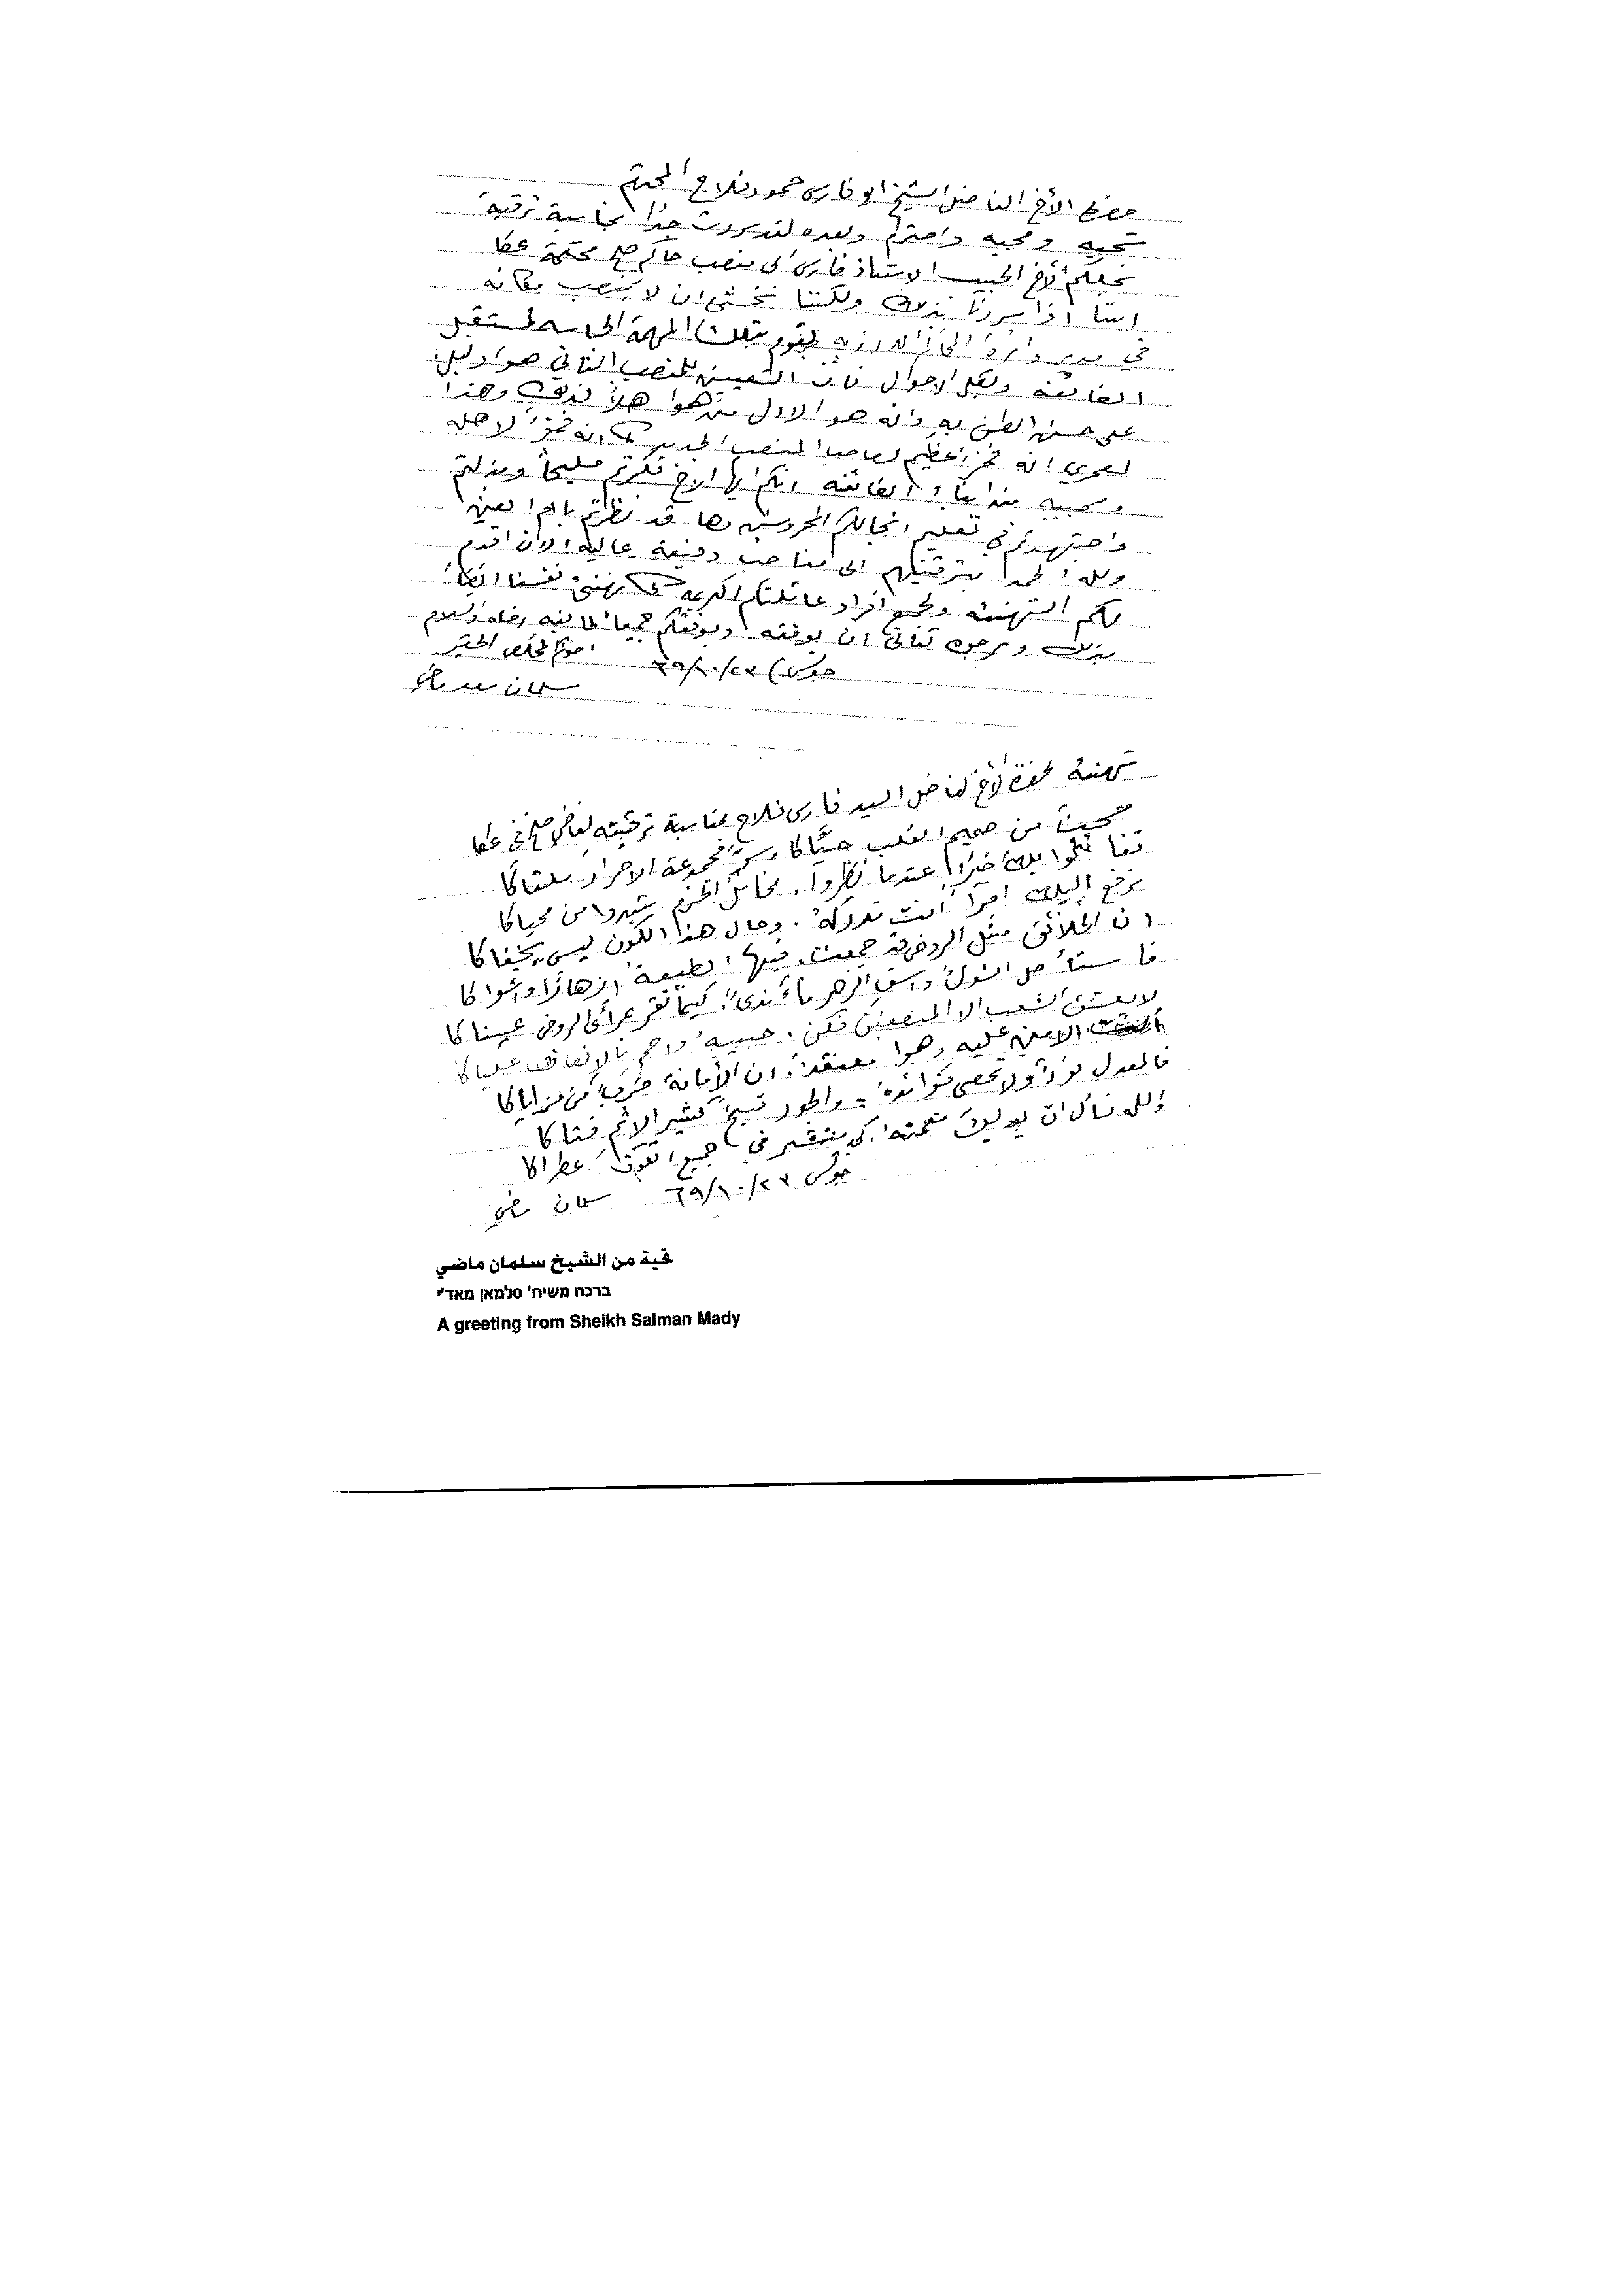 حضرة الأخ الفاضل الشيخ ابو فارس حمود فلاح المحترم
تحيه ومحبه واحترام وبعده لقد سررت جداً بمناسبة ترقية
نجلكم الأخ الحبيب الاستاذ فارس الى منصب حاكم صلح محكمة عكا
اننا اذا سررنا بذلك ولكننا نخشى ان لا ينصب مكانه
في مدير دائرة المحاكم الدرزيه يقوم بتلك المهمة الحاسه لمستقبل
الطائفه وبكل الاحوال فان التعيين للمنصب الثاني هو ادليل
على حسن الظن به وانه هو الاول من هوا هلاً لذلك وهذا
لعمري انه فخرٌ عظيم لصاحب المنصب الجديد كما انه فخرٌ لاهله
ومحبيه من ابناء الطائفه انكم ايها الاخ فكرتم مليحاً وبذلتم
واجتهدتم في تعليم انجالكم المحروسين وها قد نظرتم بام العين
ولله الحمد بترقيتهم الى مناصب رفيعة عاليه والان اقدم
لكم التهنئه ولجميع افراد عائلتكم الكريمه كما نهنئ نفسنا ايضاً
بذلك ونرجوه تعالى ان يوفقه ويوفقكم جميعاً لما فيه رضاه والسلام
جولس) ٢٣/١٠/٦٩ اخوكم المخلص الحقير
سلمان سعد ماضي
تهنئة لحضرة الأخ الفاضل السيد فارس فلاح بمناسبة ترقيته لقاضي صلح في عكا
محبٌ من صميم القلب حيَّاكا وسرَّ مجموعة الاحرار ملقاكا
تفائلوا بك خيراً عندما نظروا. مخائل الحزم تبدوا من محياكا
نرفع اليك امراً انت تدركهُ. وحال هذا الكون ليس يخفاكا
ان الخلائق مثل الروض قد جمعت. فيها الطبيعة ازهارًا واشواكا
فاستأصل الشوك واسق الزهر ماءَ ندىً. كيما تقر بمرأى الروض عيناكا
لا يعشق الشعب الا المنصفين فكن. حبيبهُ واحكم بالانصاف علياكا
الامين عليه وهوا معتقدٌ. ان الأمانة ضربٌ من مزاياكا
فالعدل نورٌ ولا تحصى فوائدهُ = والجور قبحٌ كثير الاثم فتاكا
والله نسأل ان يوليك نعمتهُ. كي ينتشر في جميع الكون عطراكا
جولس ٢٣/١٠/٦٩ سلمان ماضي
تحية من الشيخ سلمان ماضي
ברכה משיח' סלמאן מאד'י
A greeting from Sheikh Salman Mady